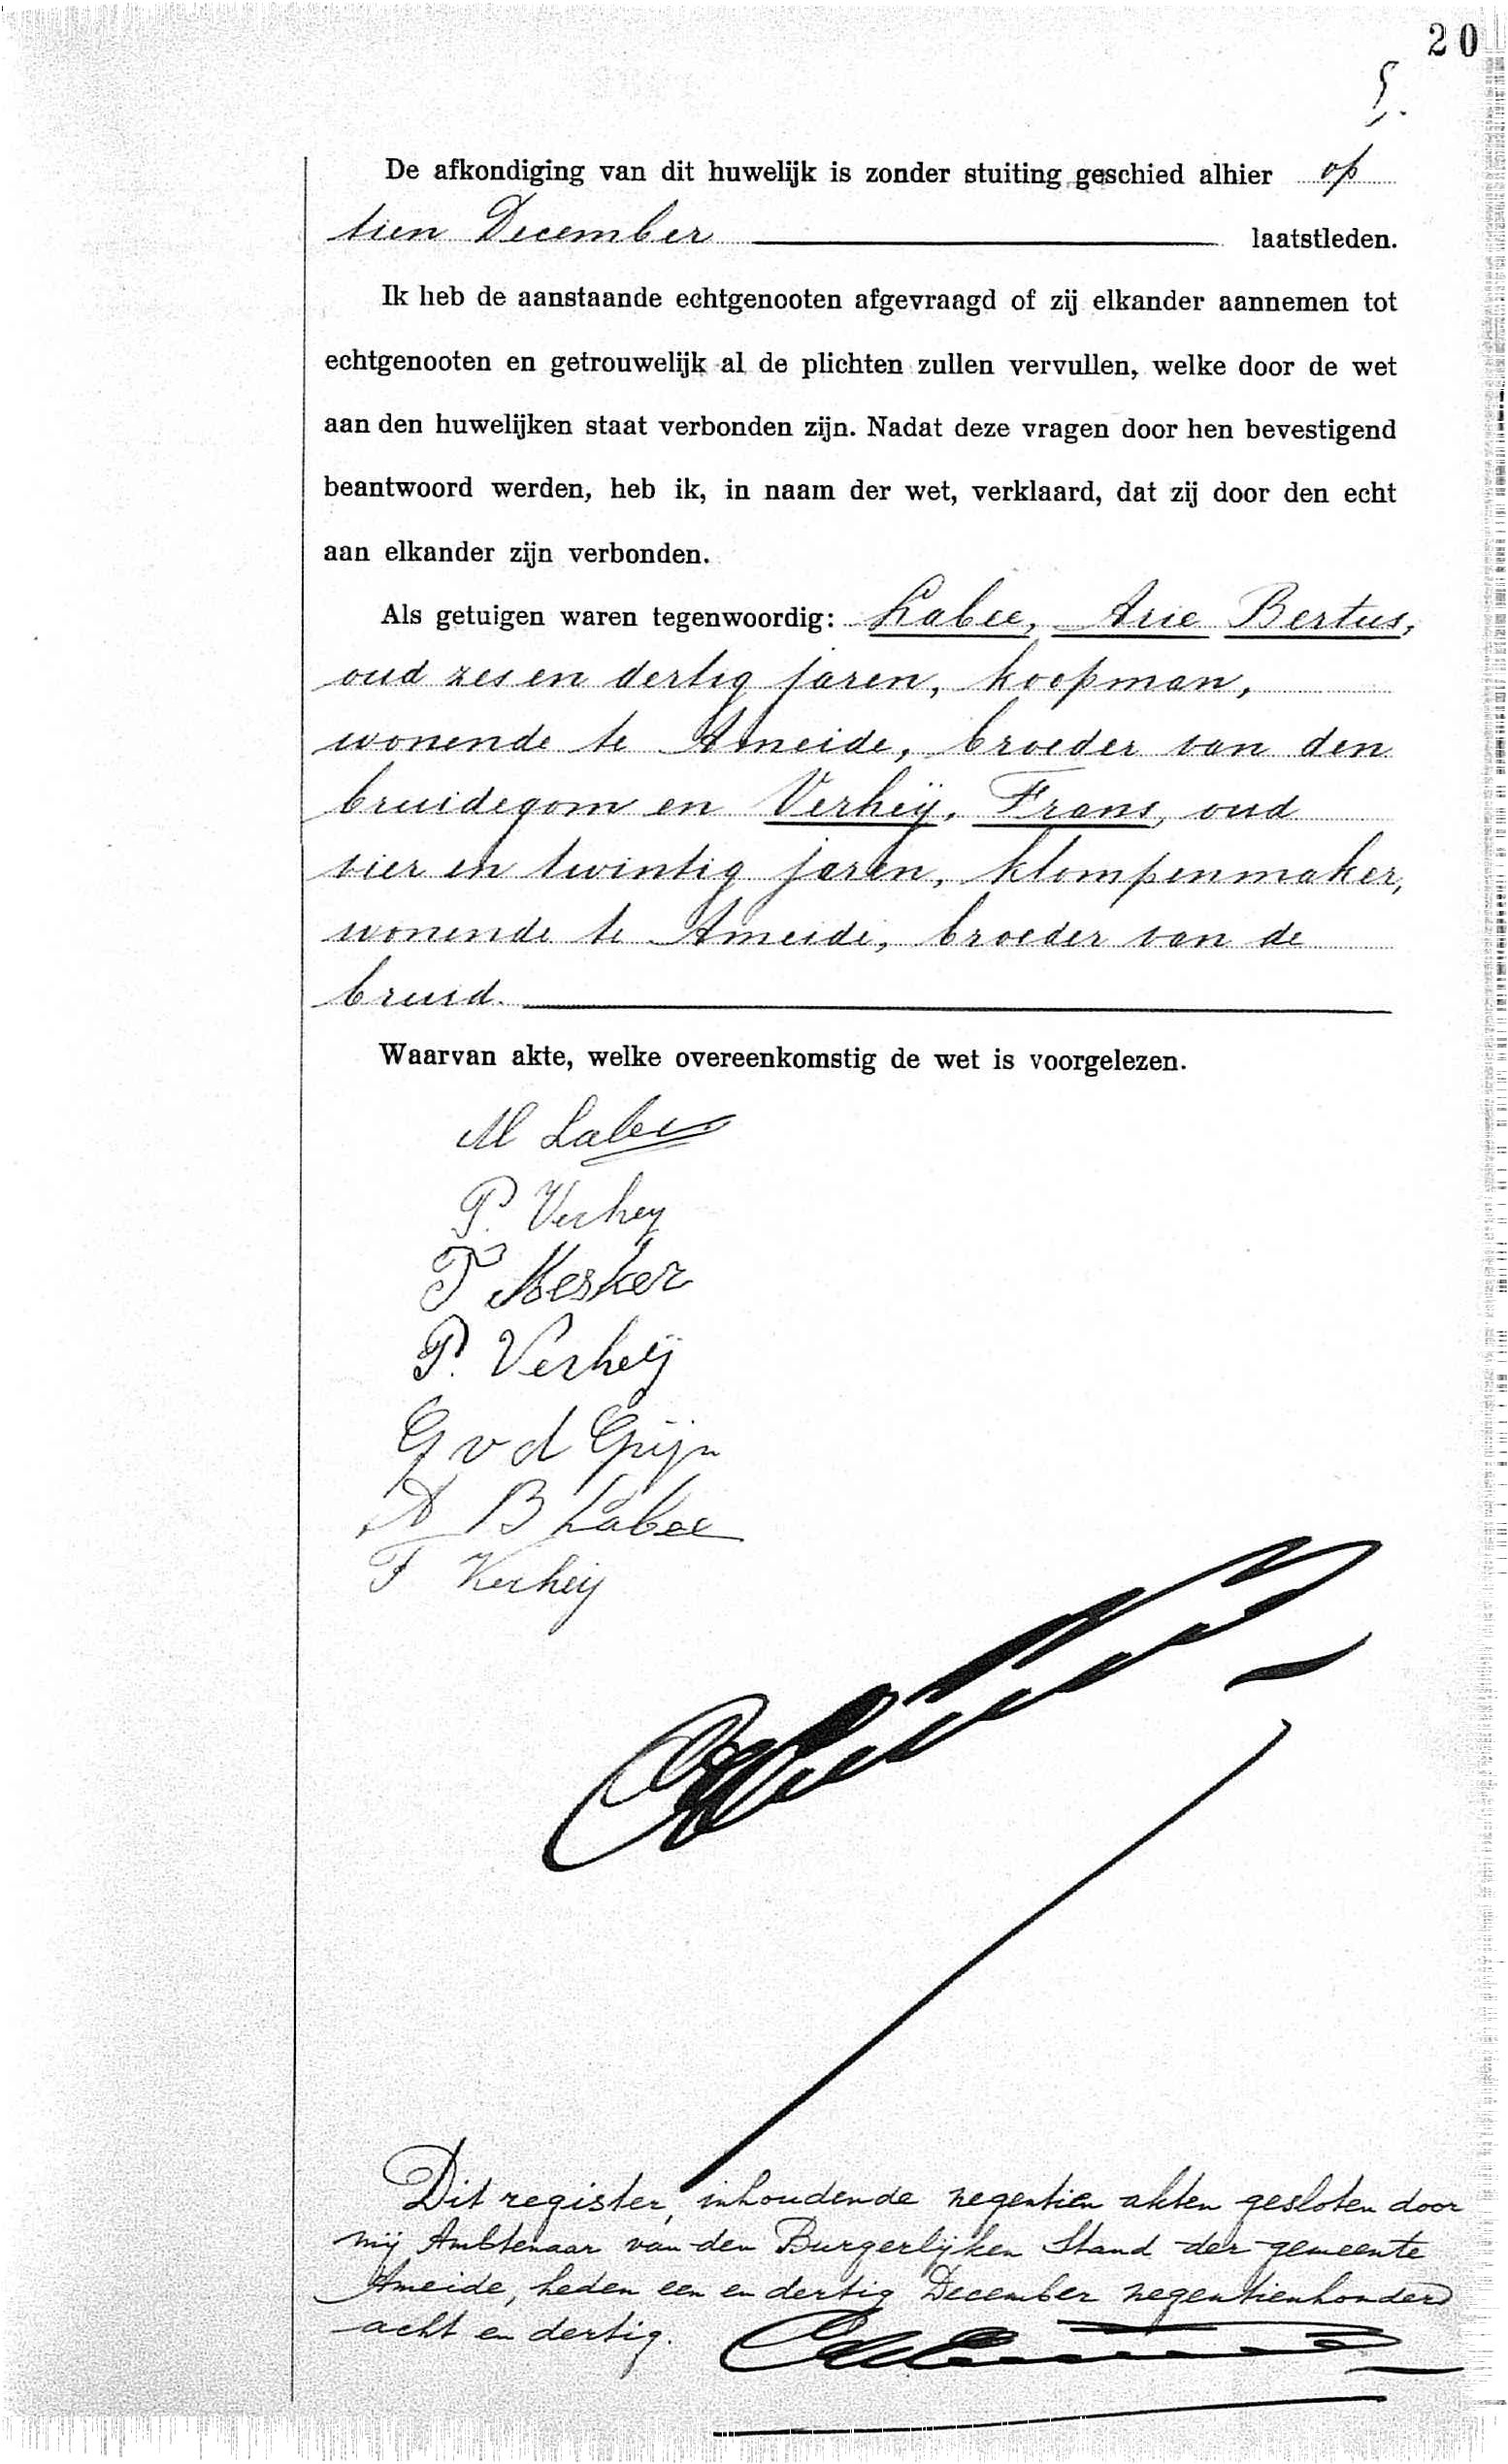 20
5.
De afkondiging van dit huwelijk is zonder stuiting geschied alhier op
tien December laatstleden.
Ik heb de aanstaande echtgenooten afgevraagd of zij elkander aannemen tot
echtgenooten en getrouwelijk al de plichten zullen vervullen, welke door de wet
aan den huwelijken staat verbonden zijn. Nadat deze vragen door hen bevestigend
beantwoord werden, heb ik, in naam der wet, verklaard, dat zij door den echt
aan elkander zijn verbonden.
Als getuigen waren tegenwoordig: Labee, Arie Bertus,
oud zes en dertig jaren, koopman,
wonende te Ameide, broeder van den
bruidegom en Verheij, Frans, oud
vier en twintig jaren, klompenmaker,
wonende te Ameide, broeder van de
bruid.
Waarvan akte, welke overeenkomstig de wet is voorgelezen.
M Labee
P. Verhey
T Mesker
P. Verheij
G v d Grijn
A B Labee
F Verheij
Dit register, inhoudende negentien akten gesloten door
mij Ambtenaar van den Burgerlijken Stand der gemeente
Ameide, heden een en dertig December negentienhonderd
acht en dertig.